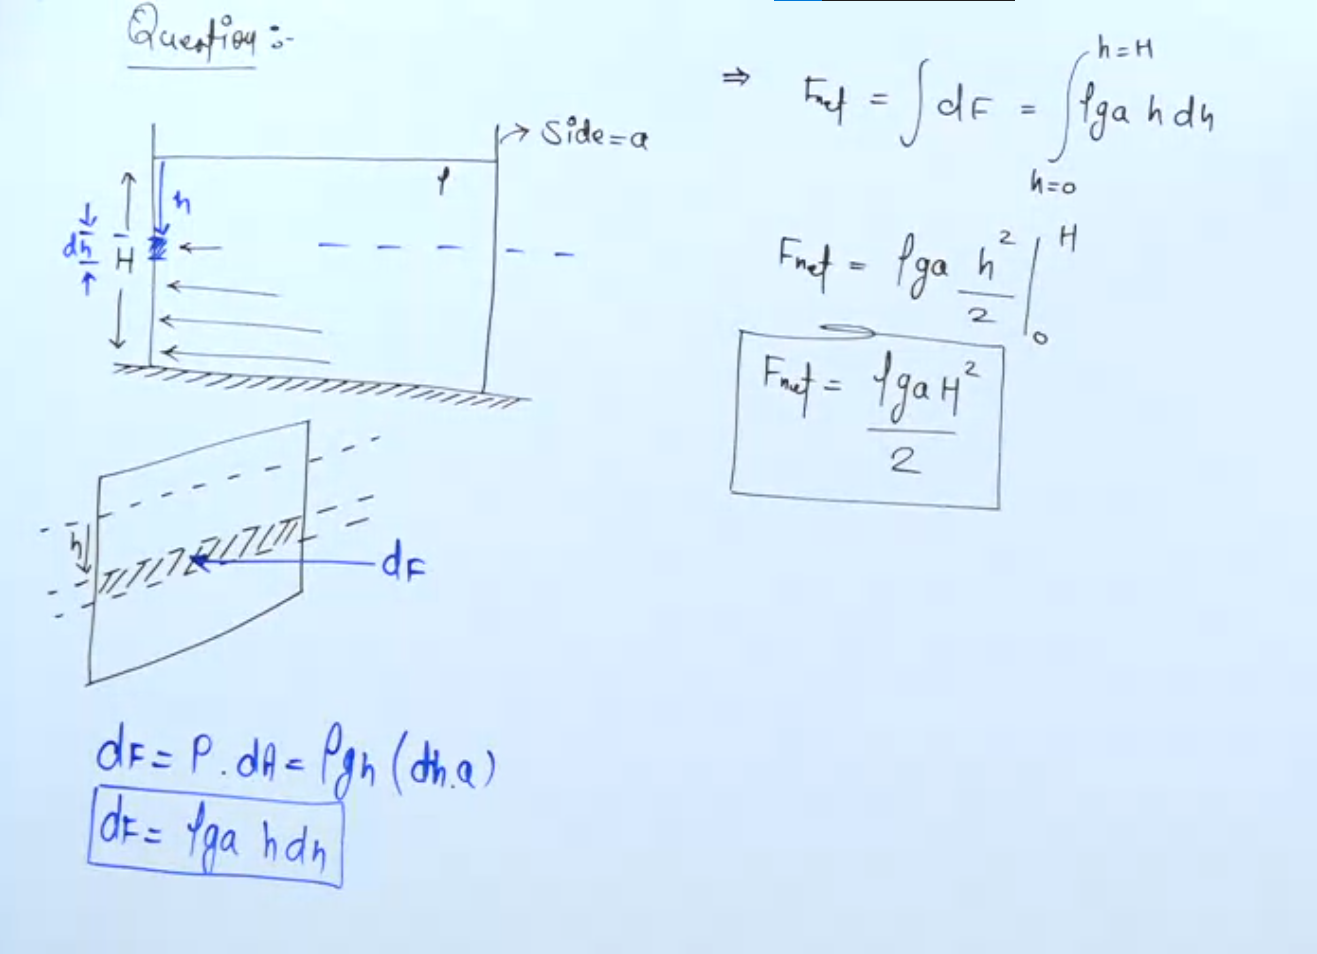 Question :-
→ Side = a
ρ
h
dh
H
h
dF
dF = P . dA = ρgh (dh.a)
dF = ρga h dh
⇒ Fnet = ∫ dF = ∫ ρga h dh
h = H
h = 0
Fnet = ρga h²/2 |₀ᴴ
Fnet = ρgaH²/2